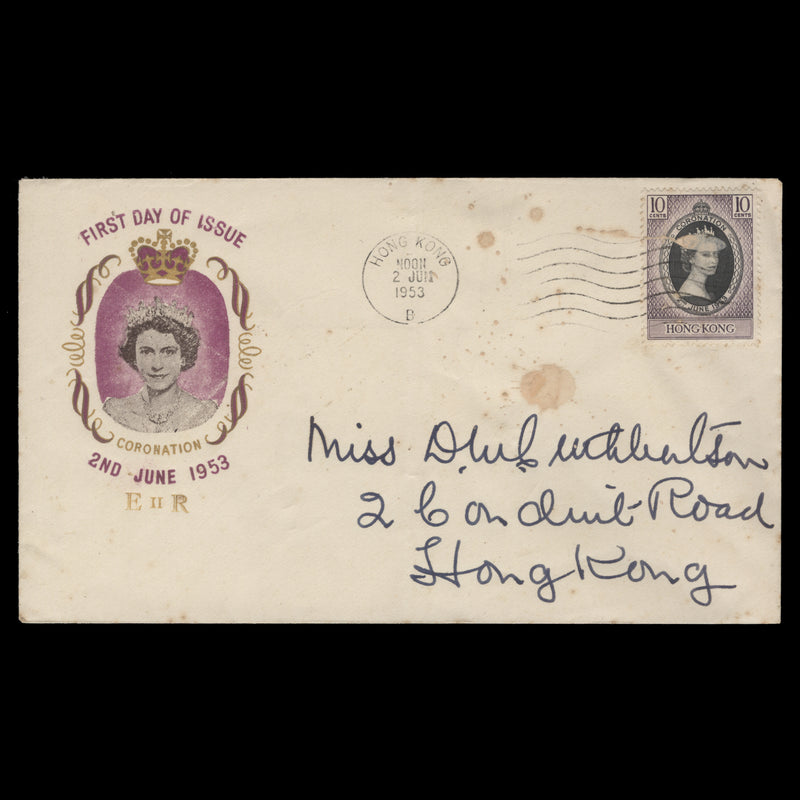 FIRST DAY OF ISSUE
CORONATION
2ND JUNE 1953
E II R
HONG KONG
NOON
2 JUN
1953
B
10 CENTS
10 CENTS
CORONATION
JUNE 1953
HONG KONG
Miss D.
2 Conduit Road
Hong Kong